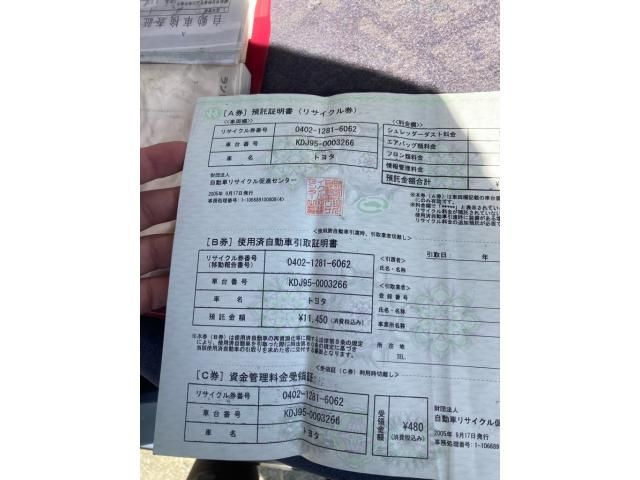 自動車検査証
[A券] 預託証明書 (リサイクル券)
<<車両欄>>
リサイクル券番号 0402-1281-6062
車台番号 KDJ95-0003266
車名 トヨタ
<<料金欄>>
シュレッダーダスト料金
エアバッグ類料金
フロン類料金
情報管理料金
預託金額合計 ¥
財団法人
自動車リサイクル促進センター
2005年 9月17日発行
<使用済自動車引渡時、引取業者切離し>
[B券] 使用済自動車引取証明書
リサイクル券番号
(移動報告番号) 0402-1281-6062
車台番号 KDJ95-0003266
車名 トヨタ
預託金額 ¥11,450 (消費税込み)
引取日 年
<引渡者>
氏名・名称
<引取業者>
登録番号
氏名・名称
事業所名
所在地
TEL
<受領証(C券)利用時切離し>
[C券] 資金管理料金受領証
リサイクル券番号 0402-1281-6062
車台番号 KDJ95-0003266
車名 トヨタ
受領金額 ¥480
(消費税込み)
財団法人
自動車リサイクル促進
2005年 9月17日発行